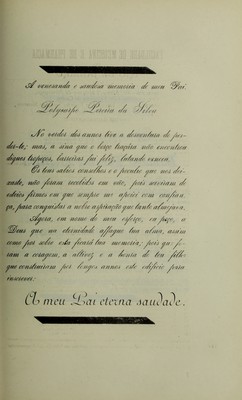 A veneranda e saudosa memoria de meu Pai
Polycarpo Pereira da Silva
No verdor dos annos tive a desventura de per-
der-te; mas, a sina que o berço traçára não encontrou
alguns tropeços, barreiras fui feliz, lutando venceu.
Os teus sabios conselhos e o precalio que nos dei-
xaste, não foram recebidos em vão, pois serviram de
esteios firmes em que sempre me apoiei com confian-
ça, para conquistar a nobre aspiração que tanto almejava.
Agora, em nome de meu esforço, eu peço, a
Deus que na eternidade affague tua alma, assim
como por sobre esta ficará tua memoria; pois que fo-
ram a coragem, a altivez e a honra de teu filho
que construiram por longos annos este edificio para
inscrever:
A meu Pai eterna saudade.